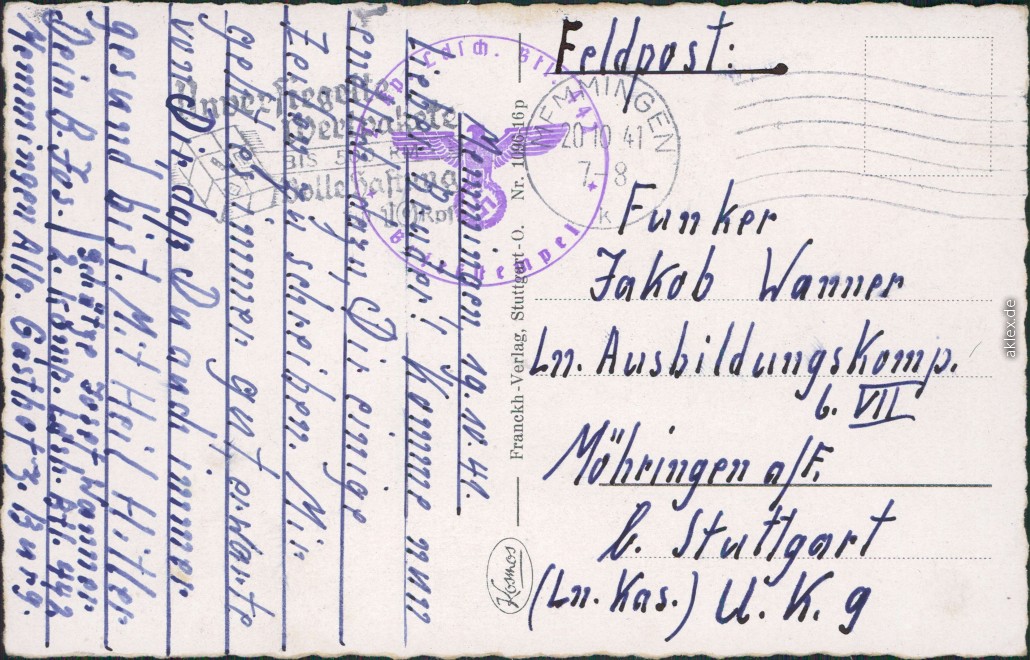 Feldpost:
Funker
Jakob Wanner
Ln. Ausbildungskomp.
b. VII
Möhringen a/F.
b. Stuttgart
(Ln. Kas.) U. K. g
Memmingen, 19. IV. 41.
Lieber Bruder! Komme nun
endlich dazu, Dir einige
Zeilen zu schreiben. Mir
geht es immer gut, erwarte
von Dir daß Du auch immer
gesund bist. Mit Heil Hitler
Dein B. Jos.
Schütze Josef Wanner
2. Komp. Ldsch. Btl. 442
Memmingen Allg. Gasthof z. Burg.
MEMMINGEN
20 10 41
7-8
k
Unversiegelte
Wertpakete
BIS 500 RM
Volle Haftung
10 Rpf
Ldsch. Btl. 442
Briefstempel
Franckh-Verlag, Stuttgart-O.
Kosmos
aklex.de